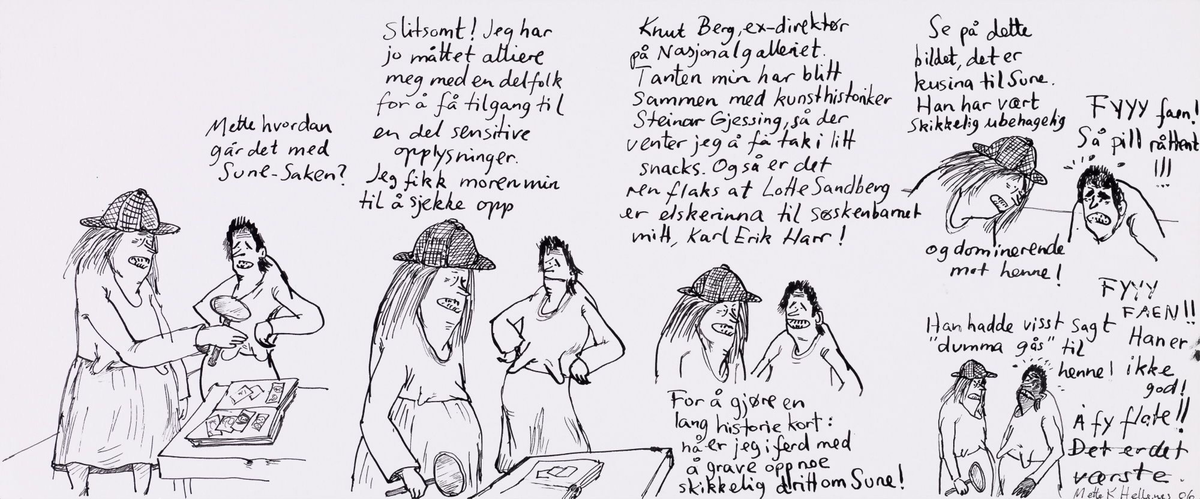 Mette hvordan
går det med
Sune-Saken?
Slitsomt! Jeg har
jo måttet alliere
meg med en del folk
for å få tilgang til
en del sensitive
opplysninger.
Jeg fikk moren min
til å sjekke opp
Knut Berg, ex-direktør
på Nasjonalgalleriet.
Tanten min har blitt
sammen med kunsthistoriker
Steinar Gjessing, så der
venter jeg å få tak i litt
snacks. Også er det
ren flaks at Lotte Sandberg
er elskerinna til søskenbarnet
mitt, Karl Erik Harr!
For å gjøre en
lang historie kort:
nå er jeg i ferd med
å grave opp noe
skikkelig dritt om Sune!
Se på dette
bildet, det er
kusina til Sune.
Han har vært
skikkelig ubehagelig
og dominerende
mot henne!
Fyyy faen!
Så pill råttent
!!!
Han hadde visst sagt
"dumma gås" til
henne!
FYYY
FAEN!!
Han er
ikke
god!
Å fy flate!!
Det er det
værste.
Mette K Hellenes